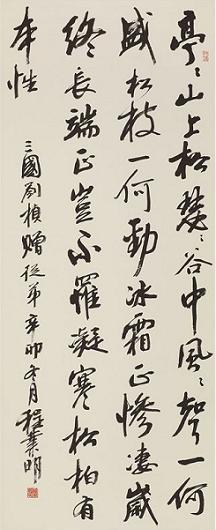 亭〻山上松瑟〻谷中風〻聲一何
盛松枝一何勁冰霜正慘凄歲
終長端正豈不羅凝寒松柏有
本性
三國劉楨贈從弟辛卯冬月程業明